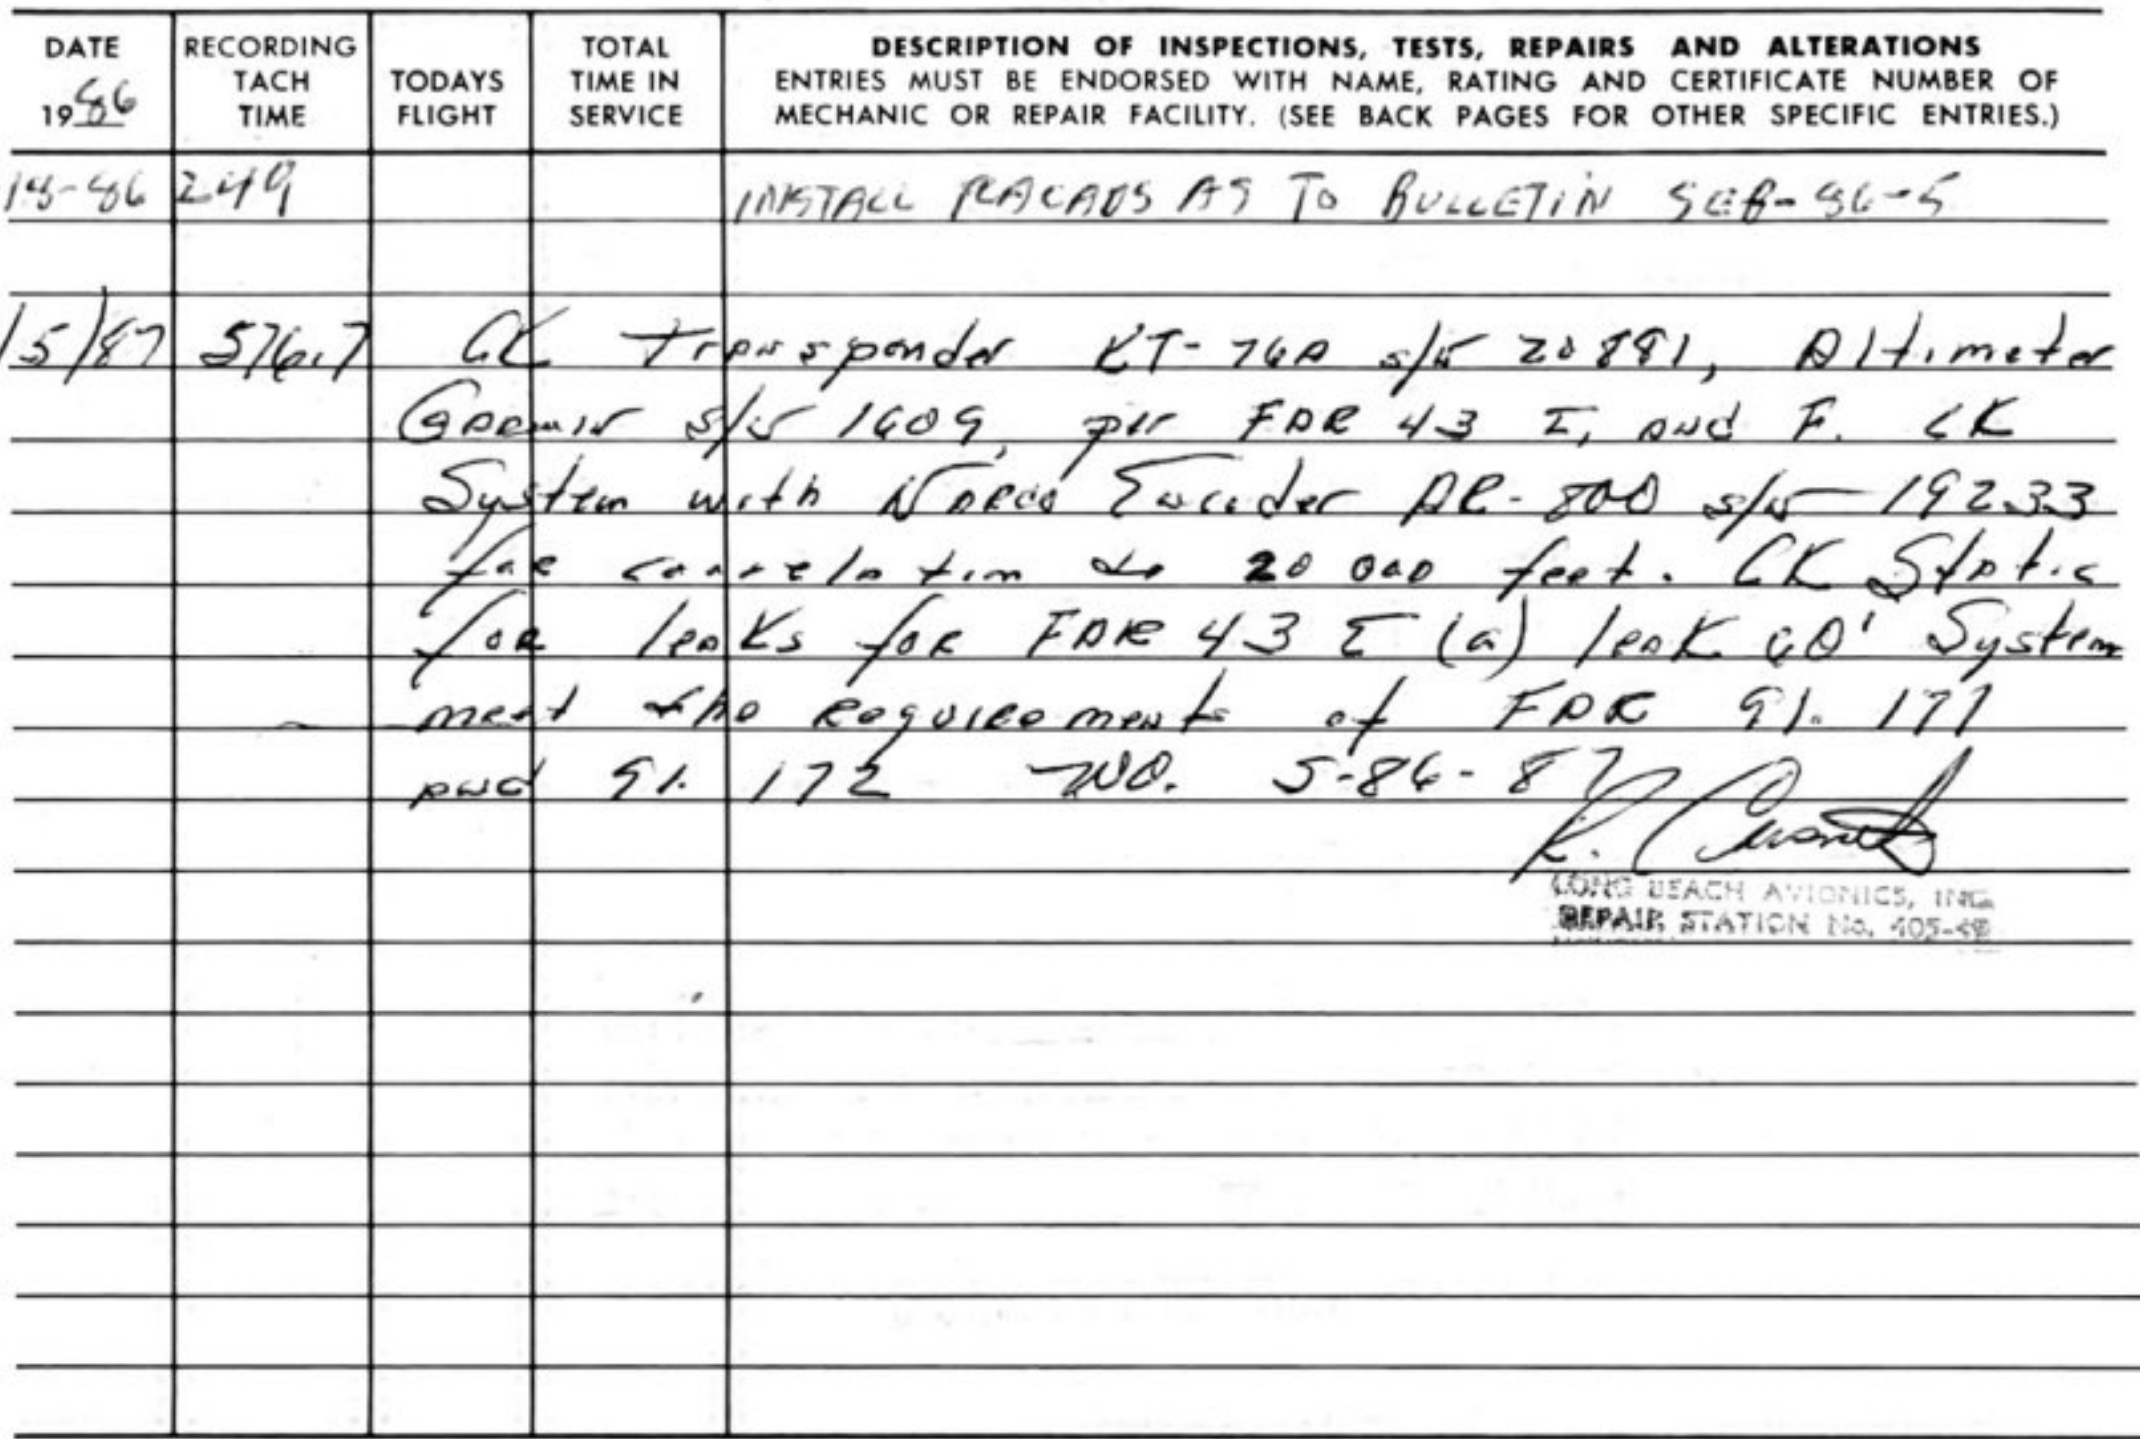 DATE RECORDING TACH TIME TODAYS FLIGHT TOTAL TIME IN SERVICE DESCRIPTION OF INSPECTIONS, TESTS, REPAIRS AND ALTERATIONS
1986
ENTRIES MUST BE ENDORSED WITH NAME, RATING AND CERTIFICATE NUMBER OF
MECHANIC OR REPAIR FACILITY. (SEE BACK PAGES FOR OTHER SPECIFIC ENTRIES.)
249 INSTALL PLACADS AS TO BULLETIN SEB-86-5
15/87 576.7 CK Transponder KT-76A s/n 20881, Altimeter
s/n 1609, per FAR 43 E, and F. CK
System with Narco Encoder AR-800 s/n 19233
for correlation to 20 000 feet. CK Static
for leaks for FAR 43 E (a) leak System
meet the requirements of FAR 91.
and 91. 172 WO. 5-86-87
R.
LONG BEACH AVIONICS, INC.
REPAIR STATION No.